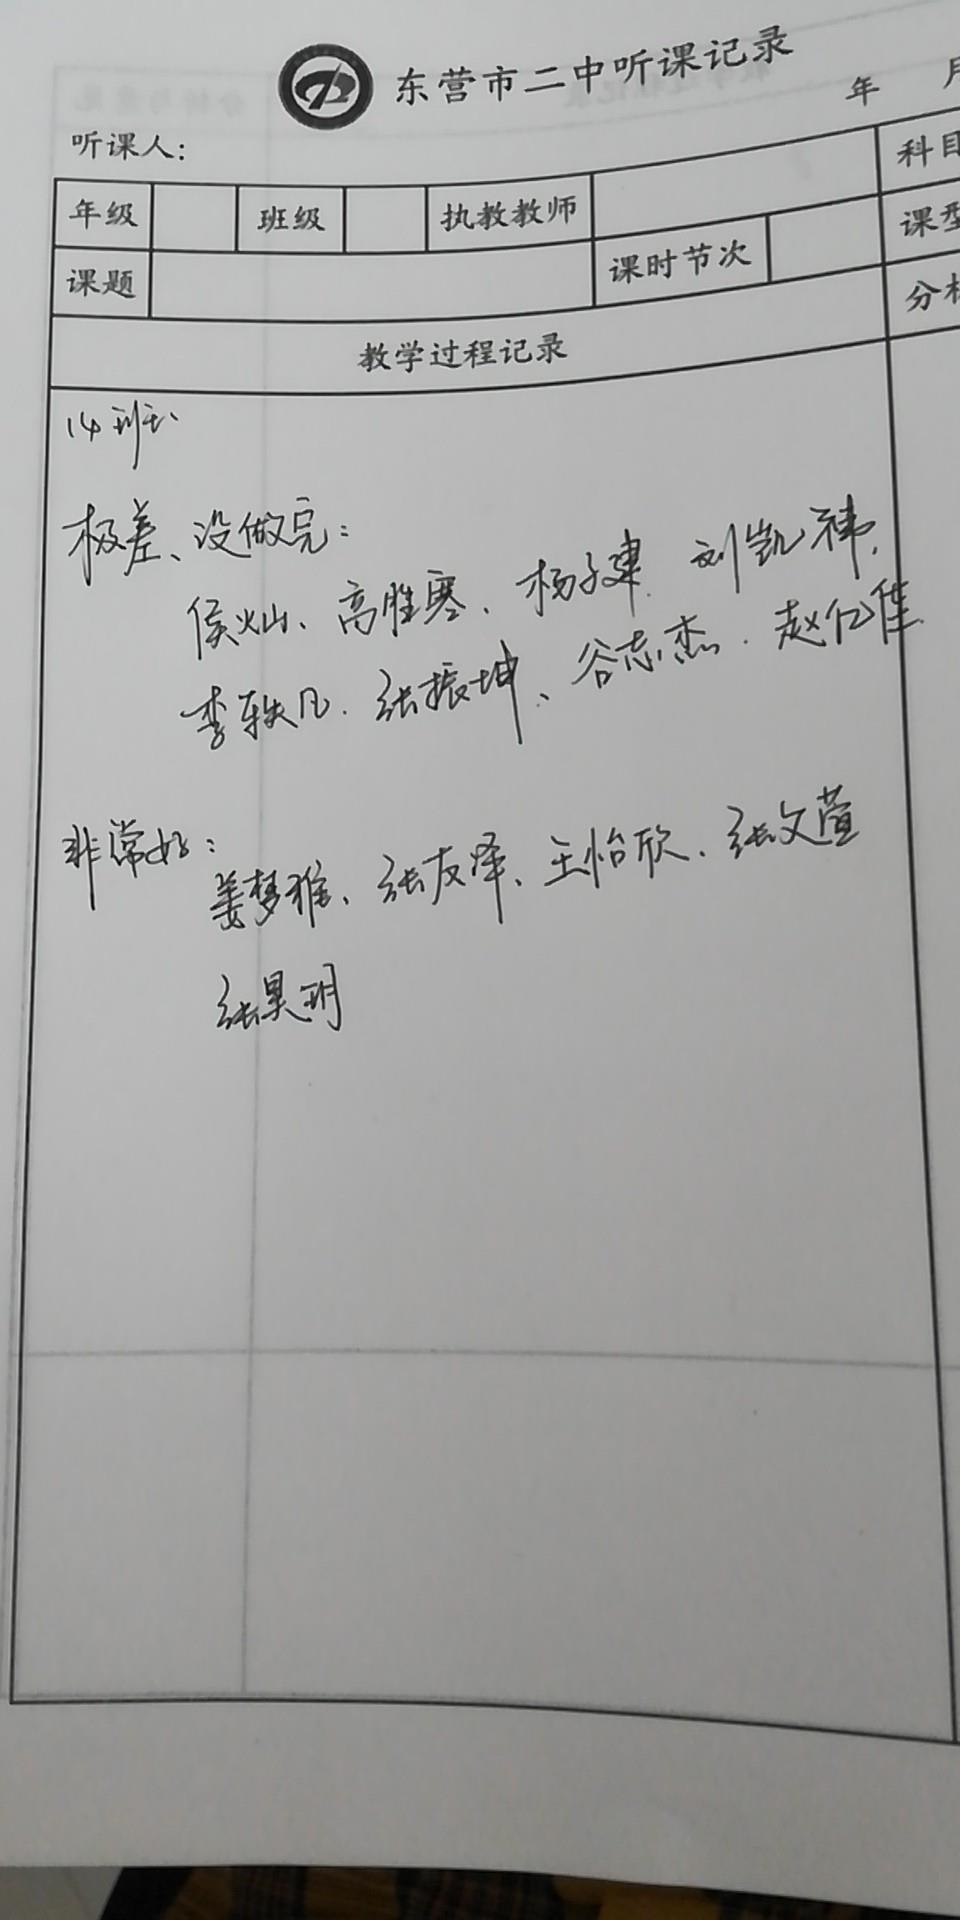 东营市二中听课记录
年 月
听课人:
年级 班级 执教教师 科目
课题 课时节次 课型
教学过程记录 分析
14班:
极差、没做完:
侯灿、高胜寒、杨子建、刘凯祎、
李轶凡、张振坤、谷志杰、赵亿佳
非常好:
姜梦雅、张友泽、王怡欣、张文萱
张昊玥